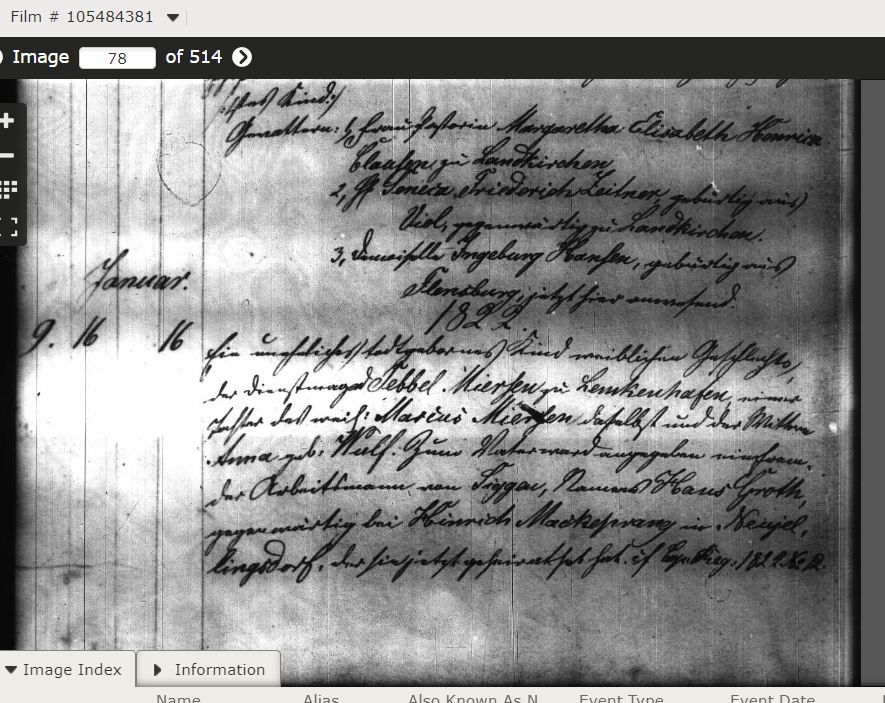 Film # 105484381
Image 78 of 514
tes Kind:/
Gevattern: 1, Frau Pastorin Margaretha Elisabeth Henrica
Clausen zu Landkirchen
2, Hr Seneca Friederich Zeitner, gebürtig aus
Viöl, gegenwärtig zu Landkirchen.
3, Demoiselle Ingeburg Hansen, gebürtig aus
Flensburg, jetzt hier anwesend.
1822.
Januar.
9. 16 16 Ein uneheliches todtgebornes Kind weiblichen Geschlechts,
der Dienstmagd Tebbel Mierssen zu Lemkenhafen, einer
Tochter des weil: Marcus Mierssen daselbst und der Wittwe
Anna geb: Wulf. Zum Vater ward angegeben ein frem,
der Arbeitsmann von Siggen, Namens Hans Groth,
gegenwärtig bei Hinrich Mackeprang in Neujel,
lingsdorf, der sie jetzt geheirathet hat. cf Cop. Reg. 1822 No
Image Index
Information
Name Alias Also Known As N Event Type Event Date